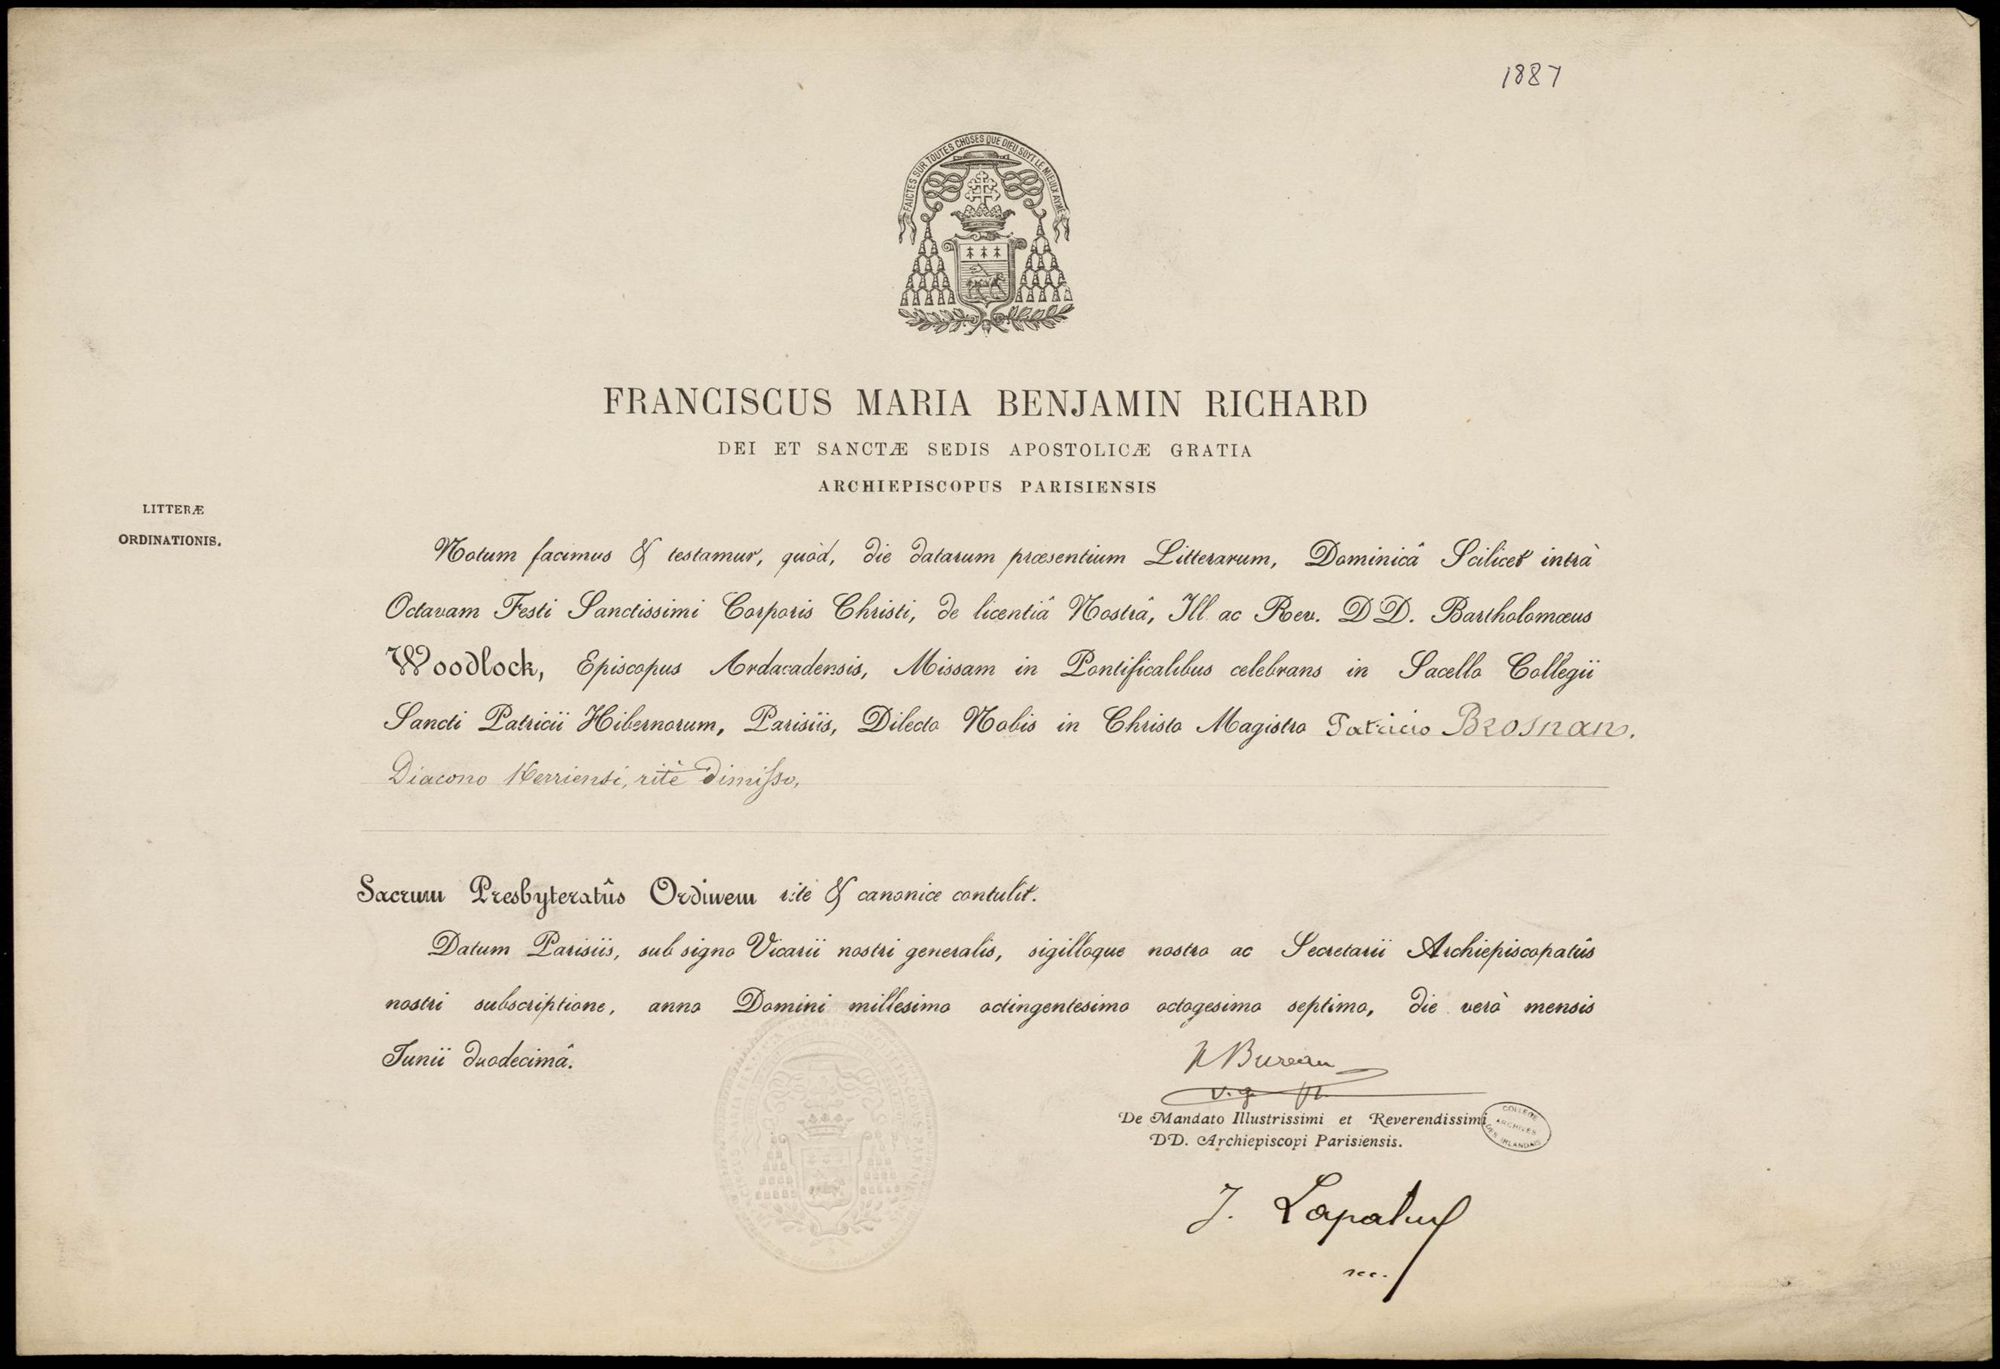 1887
FAICTES SUR TOUTES CHOSES QUE DIEU SOYT LE MIEULX AYMÉ
FRANCISCUS MARIA BENJAMIN RICHARD
DEI ET SANCTÆ SEDIS APOSTOLICÆ GRATIA
ARCHIEPISCOPUS PARISIENSIS
LITTERÆ
ORDINATIONIS.
Notum facimus & testamur, quòd, die datarum præsentium Litterarum, Dominicâ Scilicet intrà
Octavam Festi Sanctissimi Corporis Christi, de licentiâ Nostrâ, Ill. ac Rev. DD. Bartholomœus
Woodlock, Episcopus Ardacadensis, Missam in Pontificalibus celebrans in Sacello Collegii
Sancti Patricii Hibernorum, Parisiis, Dilecto Nobis in Christo Magistro Patricio Brosnan,
Diacono Kerriensi, ritè dimisso,
Sacrum Presbyteratûs Ordinem ritè & canonice contulit.
Datum Parisiis, sub signo Vicarii nostri generalis, sigilloque nostro ac Secretarii Archiepiscopatûs
nostri subscriptione, anno Domini millesimo octingentesimo octogesimo septimo, die verò mensis
Junii duodecimâ.
Bureau
v. g.
De Mandato Illustrissimi et Reverendissimi
DD. Archiepiscopi Parisiensis.
COLLEGE
ARCHIVES
DES IRLANDAIS
J.
sec.